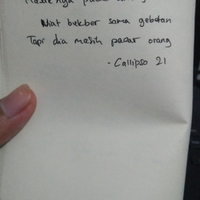 Niat bukber sama gebetan
Tapi dia masih pacar orang
- Callipso 21